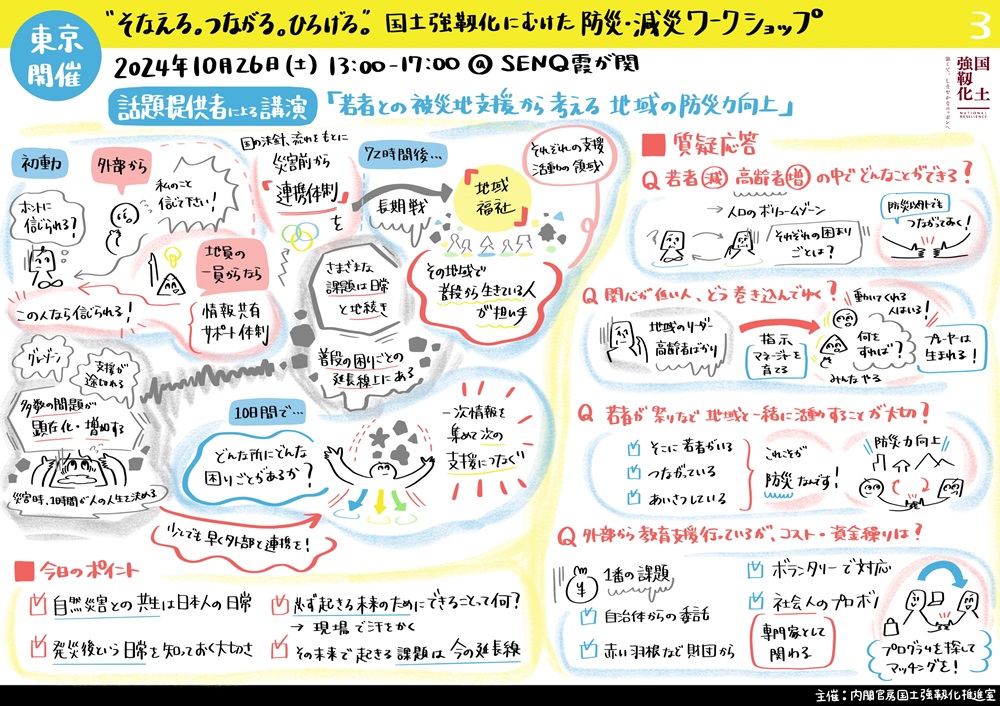 東京
開催
"そなえる。つながる。ひろげる。" 国土強靱化にむけた 防災・減災ワークショップ
3
2024年10月26日(土) 13:00-17:00 @ SENQ霞が関
国土
強靱化
NATIONAL
RESILIENCE
話題提供者による講演 「若者との被災地支援から考える 地域の防災力向上」
初動
外部から
ホントに
信じられる?
私のこと
信じて下さい!
地員の
一員からなら
この人なら信じられる!
情報共有
サポート体制
国の方針、流れをもとに
災害前から
「連携体制」
を
72時間後…
長期戦
「地域
福祉」
それぞれの支援
活動の領域
さまざまな
課題は日常
と地続き
普段の困りごとの
延長線上にある
その地域で
普段から生きている人
が担い手
グレーゾーン
支援が
途切れる
多数の問題が
顕在化・増加する
災害時、1時間が人の人生を決める
10日間で…
どんな所にどんな
困りごとがあるか?
一次情報を
集めて次の
支援につなぐ
少しでも早く外部と連携を!
今日のポイント
自然災害との共生は日本人の日常
発災後という日常を知っておく大切さ
必ず起きる未来のためにできることって何?
→ 現場で汗をかく
その未来で起きる課題は今の延長線
質疑応答
Q 若者減 高齢者増の中でどんなことができる?
→ 人口のボリュームゾーン
それぞれの困り
ごとは?
防災以外でも
つながっておく!
Q 関心が低い人、どう巻き込んでゆく?
地域のリーダー
高齢者ばかり
指示
マネージャーを
育てる
動いてくれる
人はいる!
何を
すれば?
みんなやる
プレーヤーは
生まれる!
Q 若者が祭りなど地域と一緒に活動することが大切?
そこに若者がいる
つながっている
あいさつしている
これこそが
防災なんです!
防災力向上
Q 外部から教育支援行っているが、コスト・資金繰りは?
¥
1番の課題
自治体からの委託
赤い羽根など財団から
ボランタリーで対応
社会人のプロボノ
専門家として
関わる
プログラムを探して
マッチングを!
主催：内閣官房国土強靱化推進室